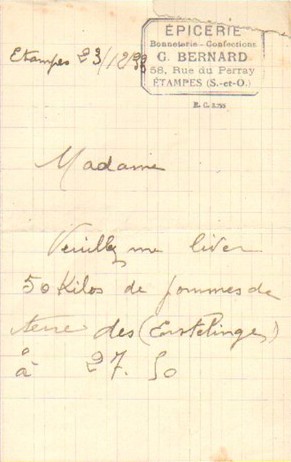 ÉPICERIE
Bonneterie - Confections
G. BERNARD
58, Rue du Perray
ÉTAMPES (S.-et-O.)
R. C. 3.795
Etampes 23/12
Madame
Veuillez me livrer
50 Kilos de pommes de
terre des (Erstelinges)
à 27.50